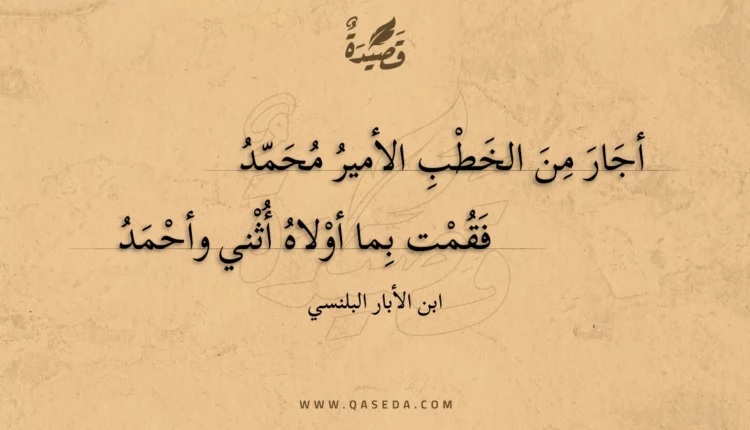 قَصِيْدَةٌ
أجَارَ مِنَ الخَطْبِ الأميرُ مُحَمّدُ
فَقُمْت بِما أوْلاهُ أُثْني وأحْمَدُ
ابن الأبار البلنسي
WWW.QASEDA.COM